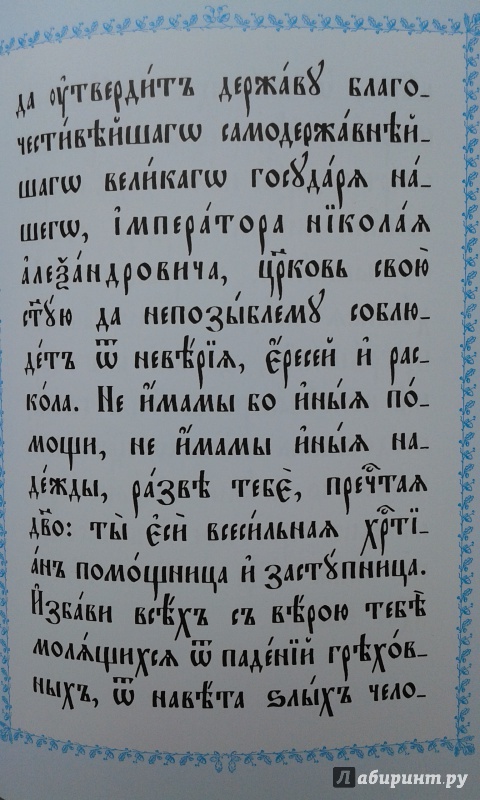 да ᲂу҆тверди́тъ держа́вꙋ благо-
чести́вѣйшагѡ самодержа́внѣй-
шагѡ вели́кагѡ госꙋда́рѧ на́-
шегѡ, і҆мпера́тора нїкола́ѧ
а҆леѯа́ндровича, цр҃ковь свою̀
ст҃ꙋ́ю да непозы́блемꙋ соблю-
де́тъ ѿ невѣ́рїѧ, є҆́ресей и҆ рас-
ко́ла. Не и҆́мамы бо и҆ны́ѧ по́-
мощи, не и҆́мамы и҆ны́ѧ на-
де́жды, ра́звѣ тебє̀, пречⷭ҇таѧ
дв҃о: ты̀ є҆сѝ всеси́льнаѧ хрⷭ҇тї-
а́нъ помо́щница и҆ застꙋ́пница.
И҆зба́ви всѣ́хъ съ вѣ́рою тебѣ̀
молѧ́щихсѧ ѿ паде́нїй грѣхо́в-
ныхъ, ѿ навѣ́та ѕлы́хъ чело-
Лабиринт.ру